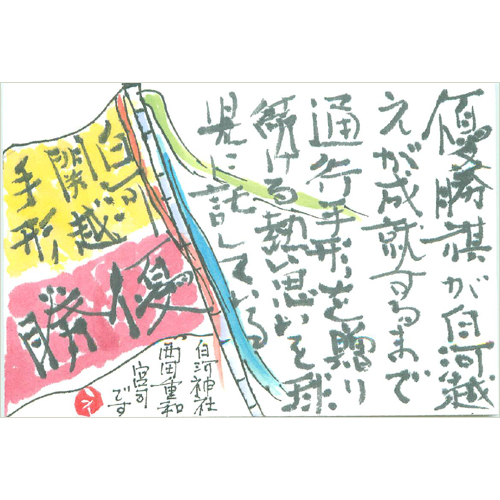 優勝旗が白河越
えが成就するまで
通行手形を贈り
続ける熱い思いを球
児に託している
白河
関越
手形
優勝
白河神社
西田重和
宮司です